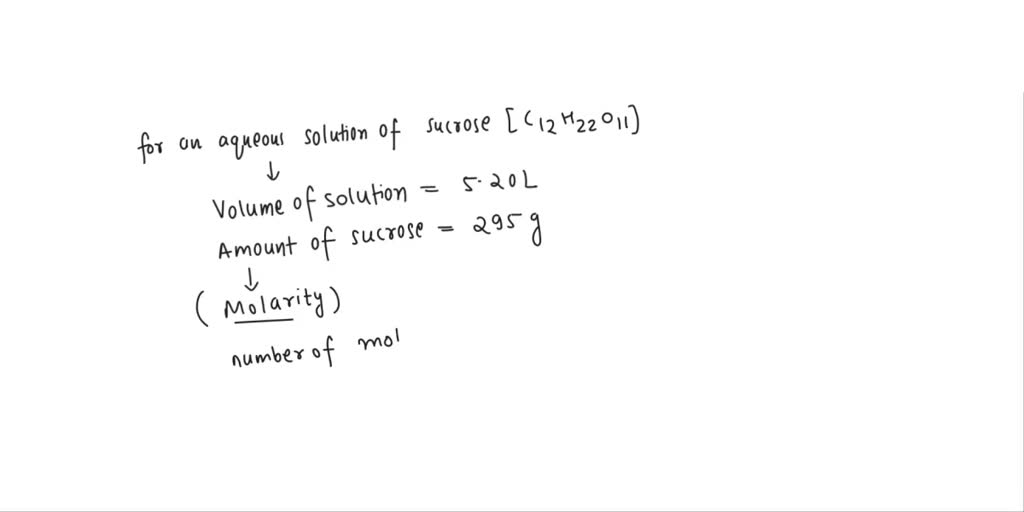 for an aqueous solution of sucrose [C12H22O11]
↓
Volume of solution = 5.20L
Amount of sucrose = 295 g
↓
(Molarity)
number of mol